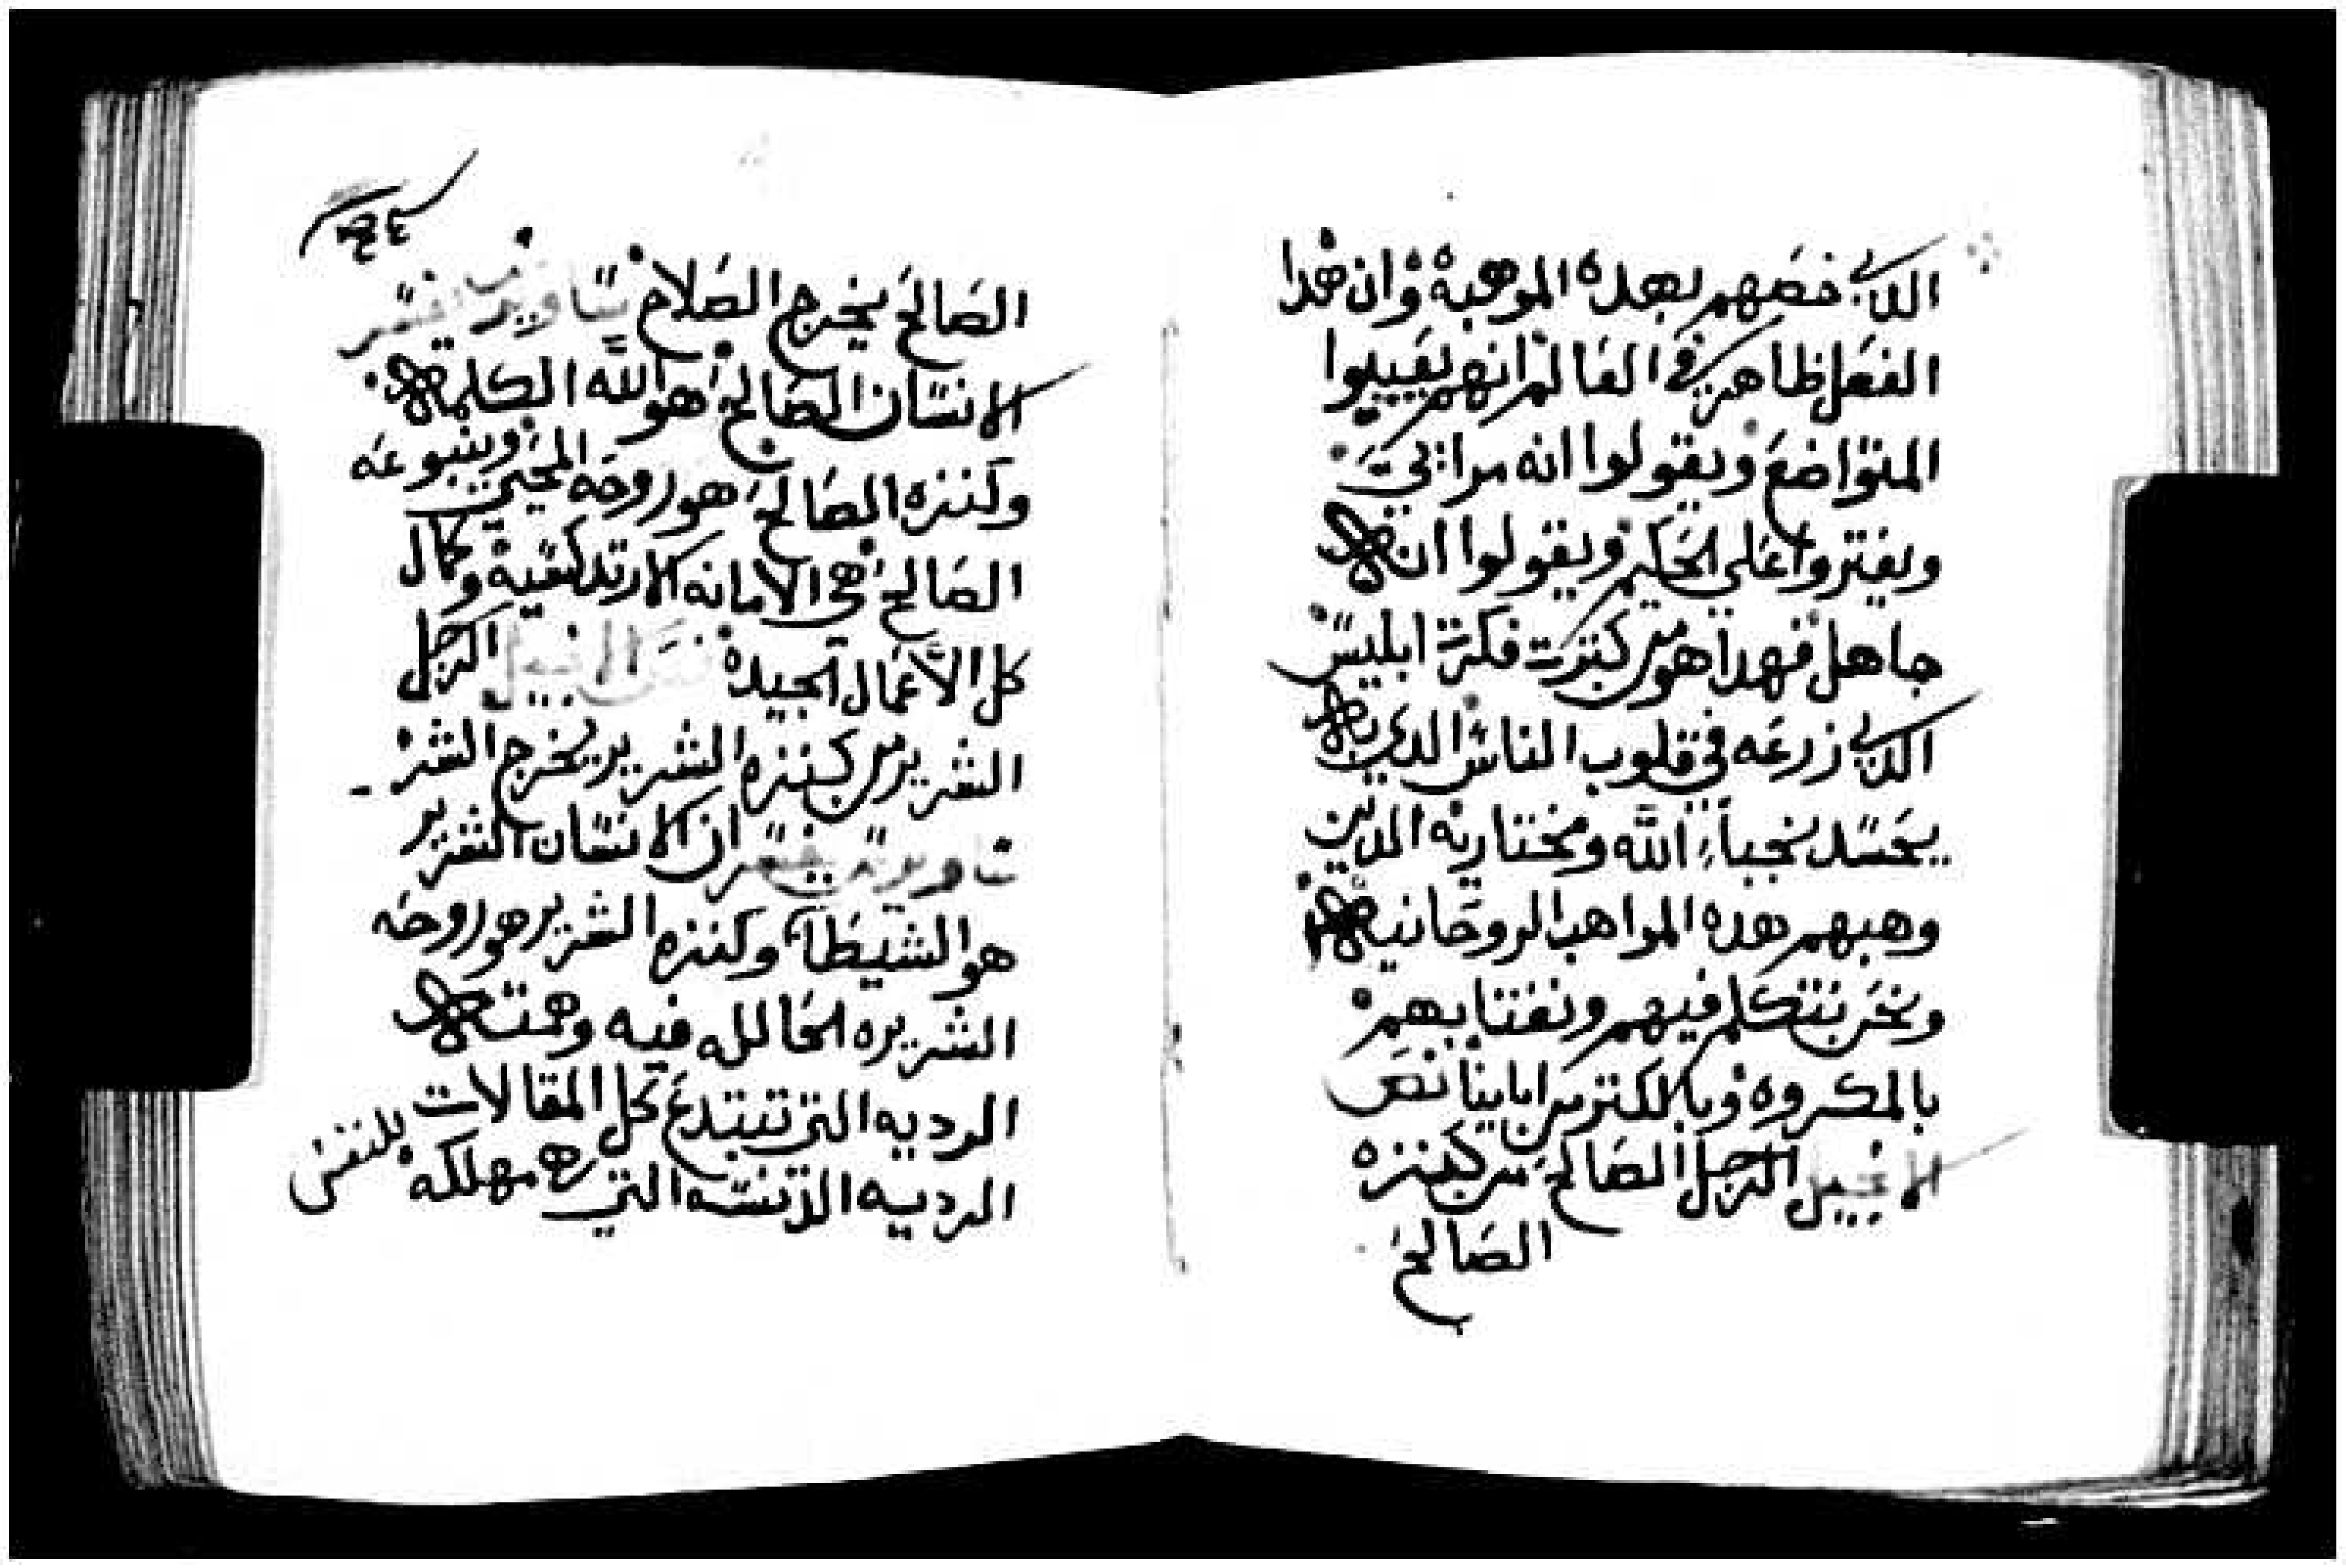 الدي خصهم بهده الموهبة وان هدا
الفعل ظاهر في العالم انهم يعيبوا
المتواضع ويقولوا انه مرائي
ويفتروا على الحكيم ويقولوا انه
جاهل فهدا هو من كنزت فكرة ابليس
الدي زرعه في قلوب الناس الدي
يحسد نجباء الله ومختاريه الدين
وهبهم هده المواهب الروحانيه
ونحن نتكلم فيهم ونغتابهم
بالمكروه وبالكتر من اباينا نص
الانجيل الرجل الصالح من كنزه
الصالح
الصالح يخرج الصلاح ساويرس يفسر
الانسان الصالح هو الله الكلمه
وكنزه الصالح هو روحه المحيي وينبوعه
الصالح هي الامانه الارتدكسيه وكمال
كل الاعمال الجيده نص الانجيل الرجل
الشرير من كنزه الشرير يخرج الشر
ساويرس يفسر ان الانسان الشرير
هو الشيطان وكنزه الشرير هو روحه
الشريره الحالله فيه وهمته
الرديه التي تبتدع كل المقالات
الرديه الدنسه التي هي مهلكه للنفس